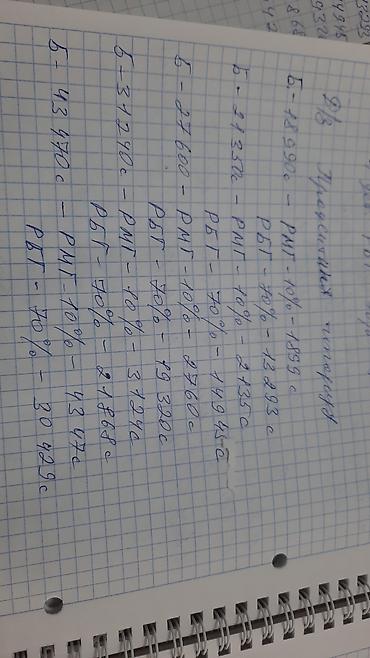 Д/з
Б - 18990с - РМГ - 10% - 1899с
РБГ - 70% - 13293с
Б - 21350с - РМГ - 10% - 2135с
РБГ - 70% - 14945с
Б - 27600 - РМГ - 10% - 2760с
РБГ - 70% - 19320с
Б - 31240с - РМГ - 10% - 3124с
РБГ - 70% - 21868с
Б - 43470с - РМГ - 10% - 4347с
РБГ - 70% - 30429с